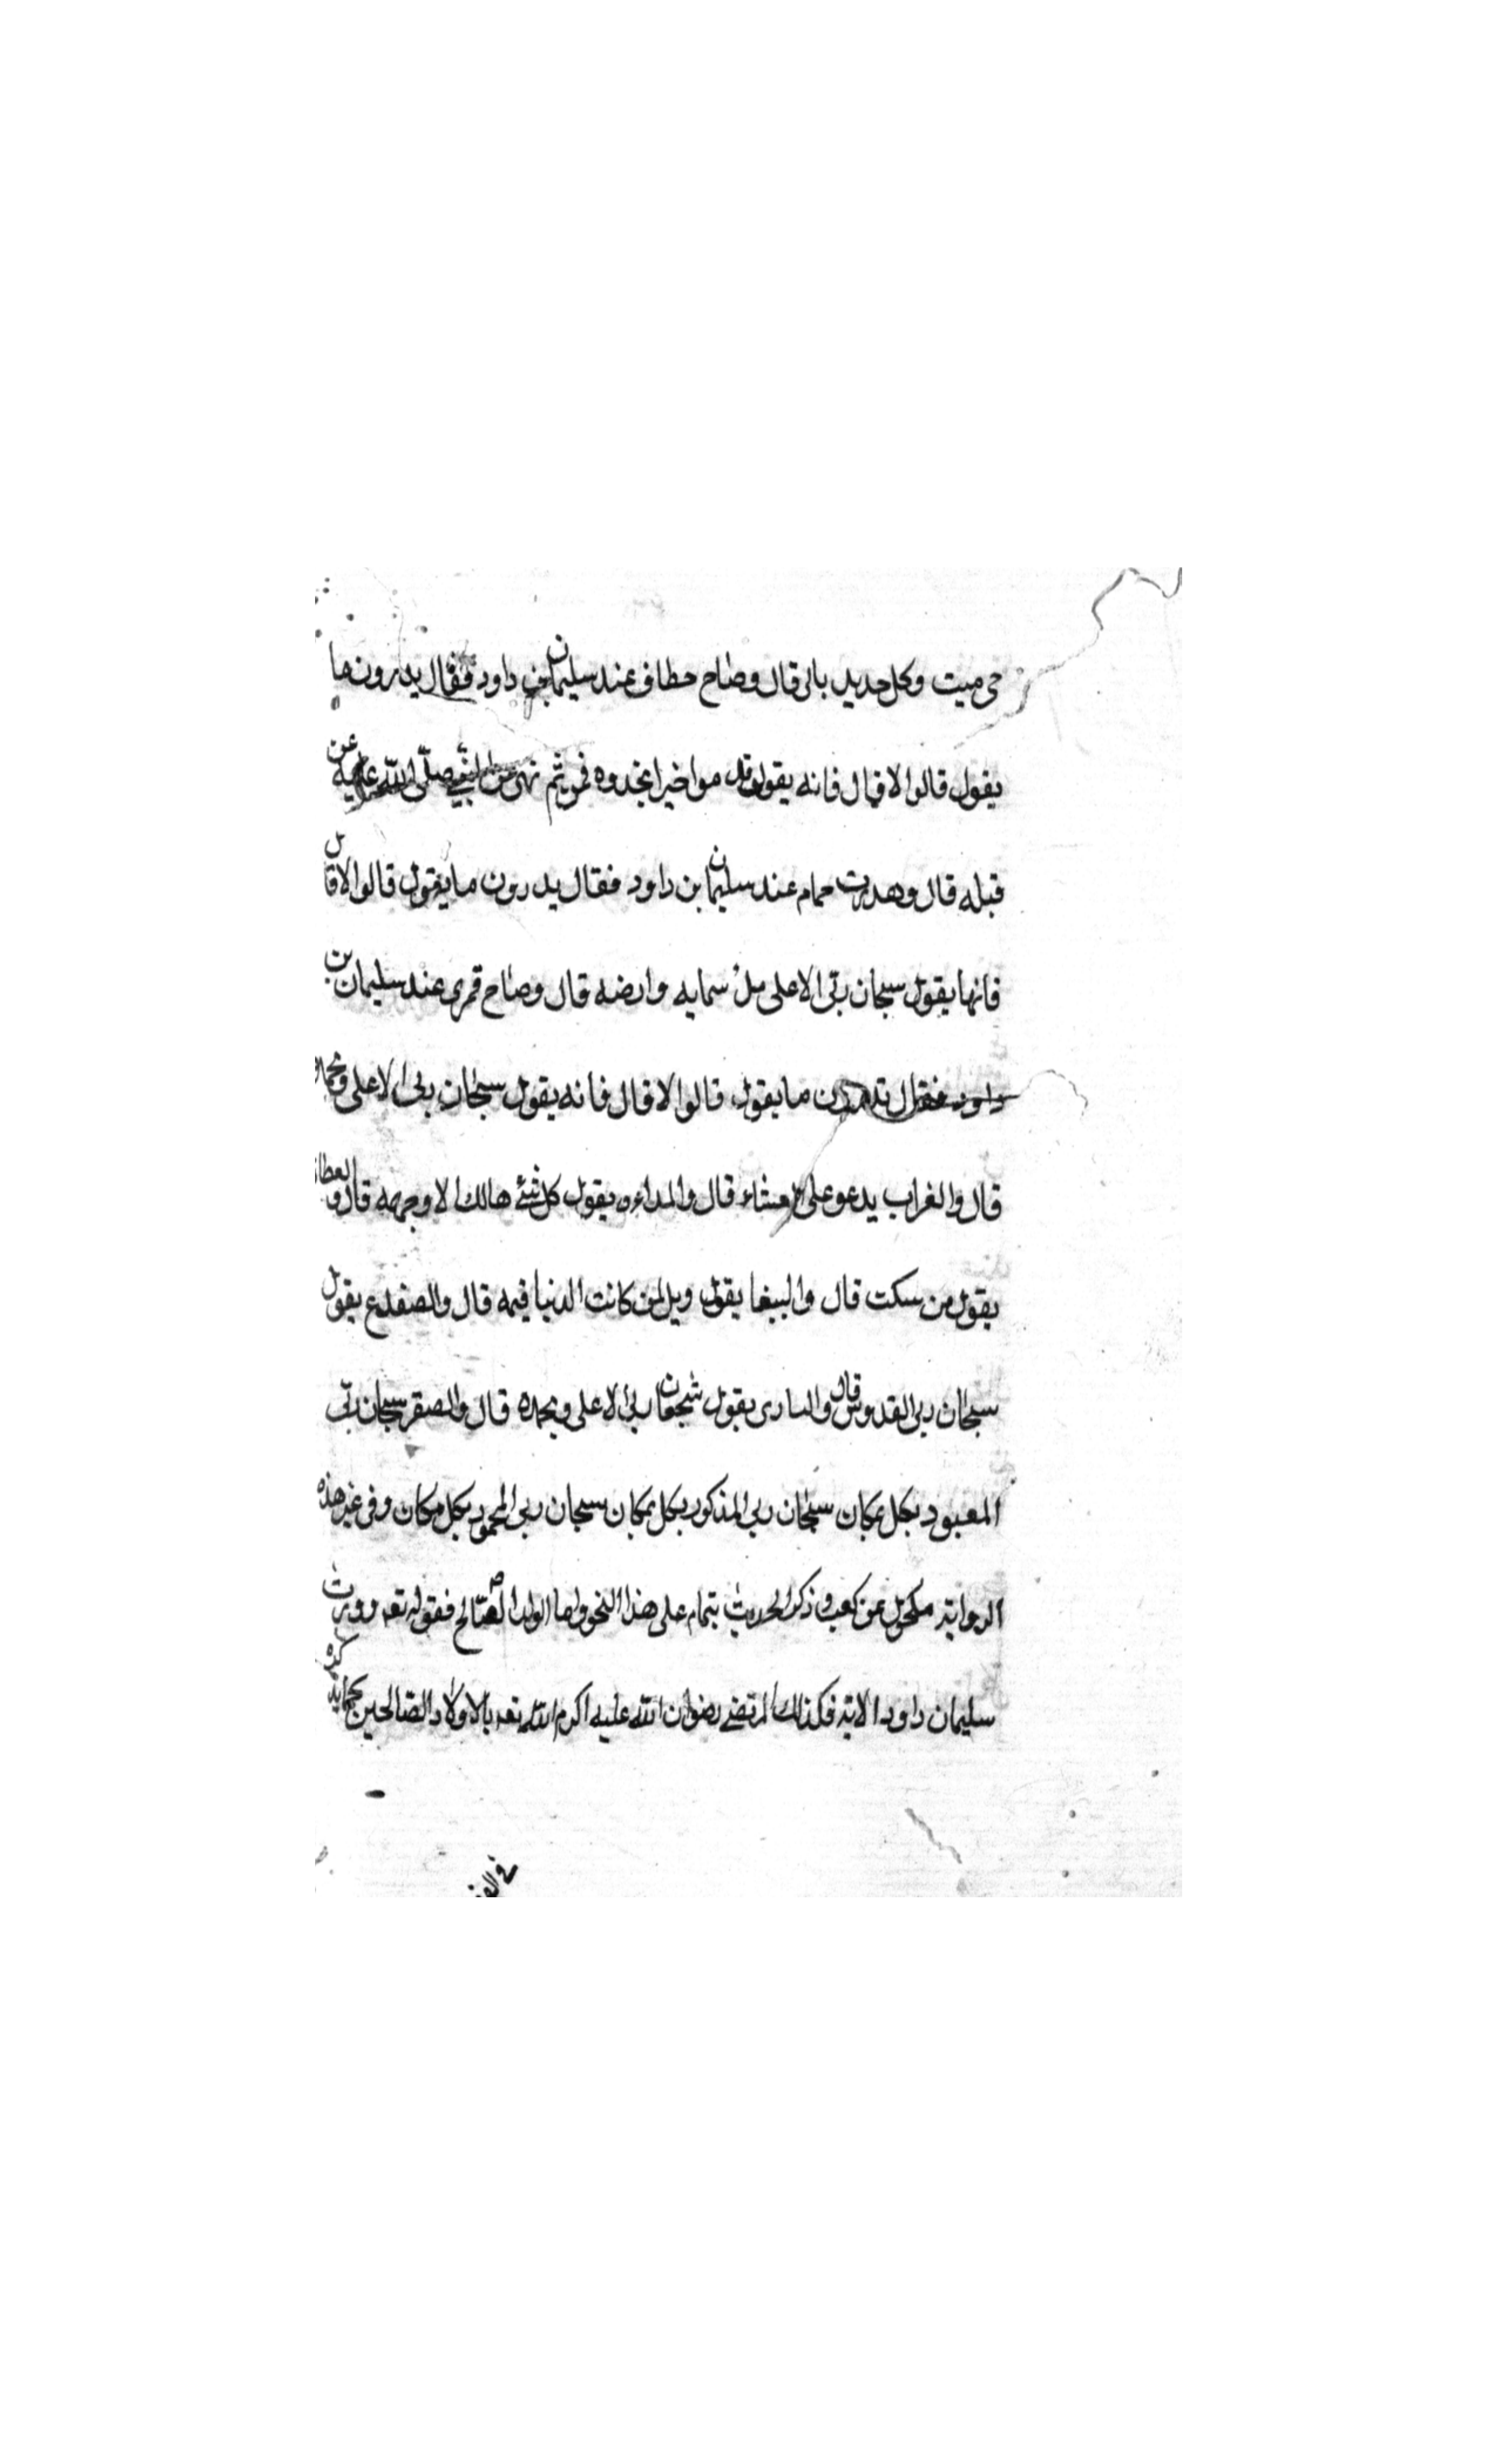 حى ميت وكل جديد بالى قال وصاح خطاف عند سليمان بن داود فقال يدرون ما
يقول قالوا لا قال فانه يقول قدموا خيرا تجدوه فمن ثم نهى النبي صلى الله عليه عن
قبله قال وهدرت حمام عند سليمان بن داود فقال يدرون ما يقول قالوا لا قال
فانها يقول سبحان ربى الاعلى ملأ سمايه وارضه قال وصاح قمرى عند سليمان بن
داود فقال تدرون ما يقول قالوا لا قال فانه يقول سبحان ربى الاعلى وبحمده
قال والغراب يدعو على قال والحداءه يقول كل شئ هالك الا وجهه قال والقطا
يقول من سكت قال والببغا يقول ويل لمن كانت الدنيا فيه قال والضفدع يقول
سبحان ربى القدوس قال والبازى يقول سبحان ربى الاعلى وبحمده قال والصقر سبحان ربى
المعبود بكل مكان سبحان ربى المذكور بكل مكان سبحان ربى المحمود بكل مكان وفى غير هذه
الرواية مكحول عن كعب وذكر الحديث بتمام على هذا النحو واما الولد الصالح فقوله تعه وورث
سليمان داود الاية فكذلك المرتضى رضوان الله عليه اكرم الله تعه بالاولاد الصالحين